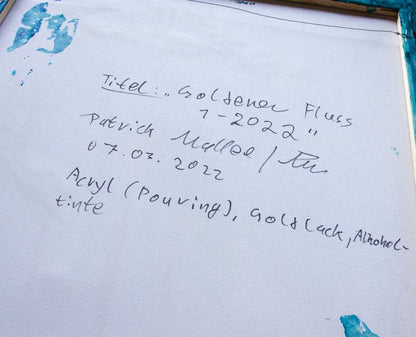 Titel: „Goldener Fluss
1-2022"
Patrick Mallee /
07.03.2022
Acryl (Pouring), Goldlack, Alkohol-
tinte